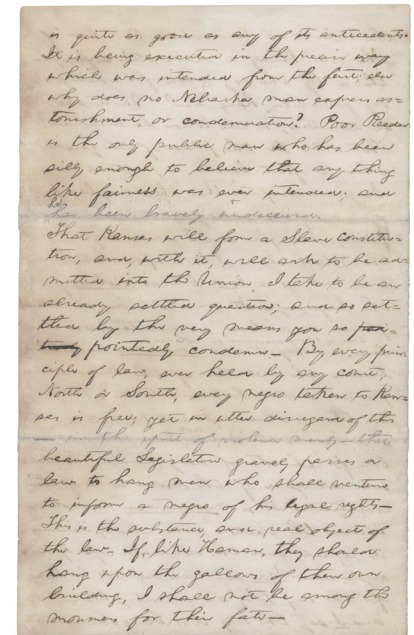 is quite as good as any of its antecedents.
It is being executed in the precise way
which was intended from the first; else
why does no Nebraska man express as=
tonishment or condemnation? Poor Reeder
is the only public man who has been
silly enough to believe that any thing
like fairness was ever intended; and
he has been bravely undeceived.
That Kansas will form a Slave constitu=
tion, and, with it, will ask to be ad=
mitted into the Union, I take to be an
already settled question; and so set=
tled by the very means you so
pointedly condemn— By every prin=
ciple of law, ever held by any court,
North or South, every negro taken to Kan=
sas is free; yet in utter disregard of this
— in the spirit of violence merely— that
beautiful Legislature gravely passes a
law to hang men who shall venture
to inform a negro of his legal rights—
This is the substance and real object of
the law. If, like Haman, they should
hang upon the gallows of their own
building, I shall not be among the
mourners for their fate—